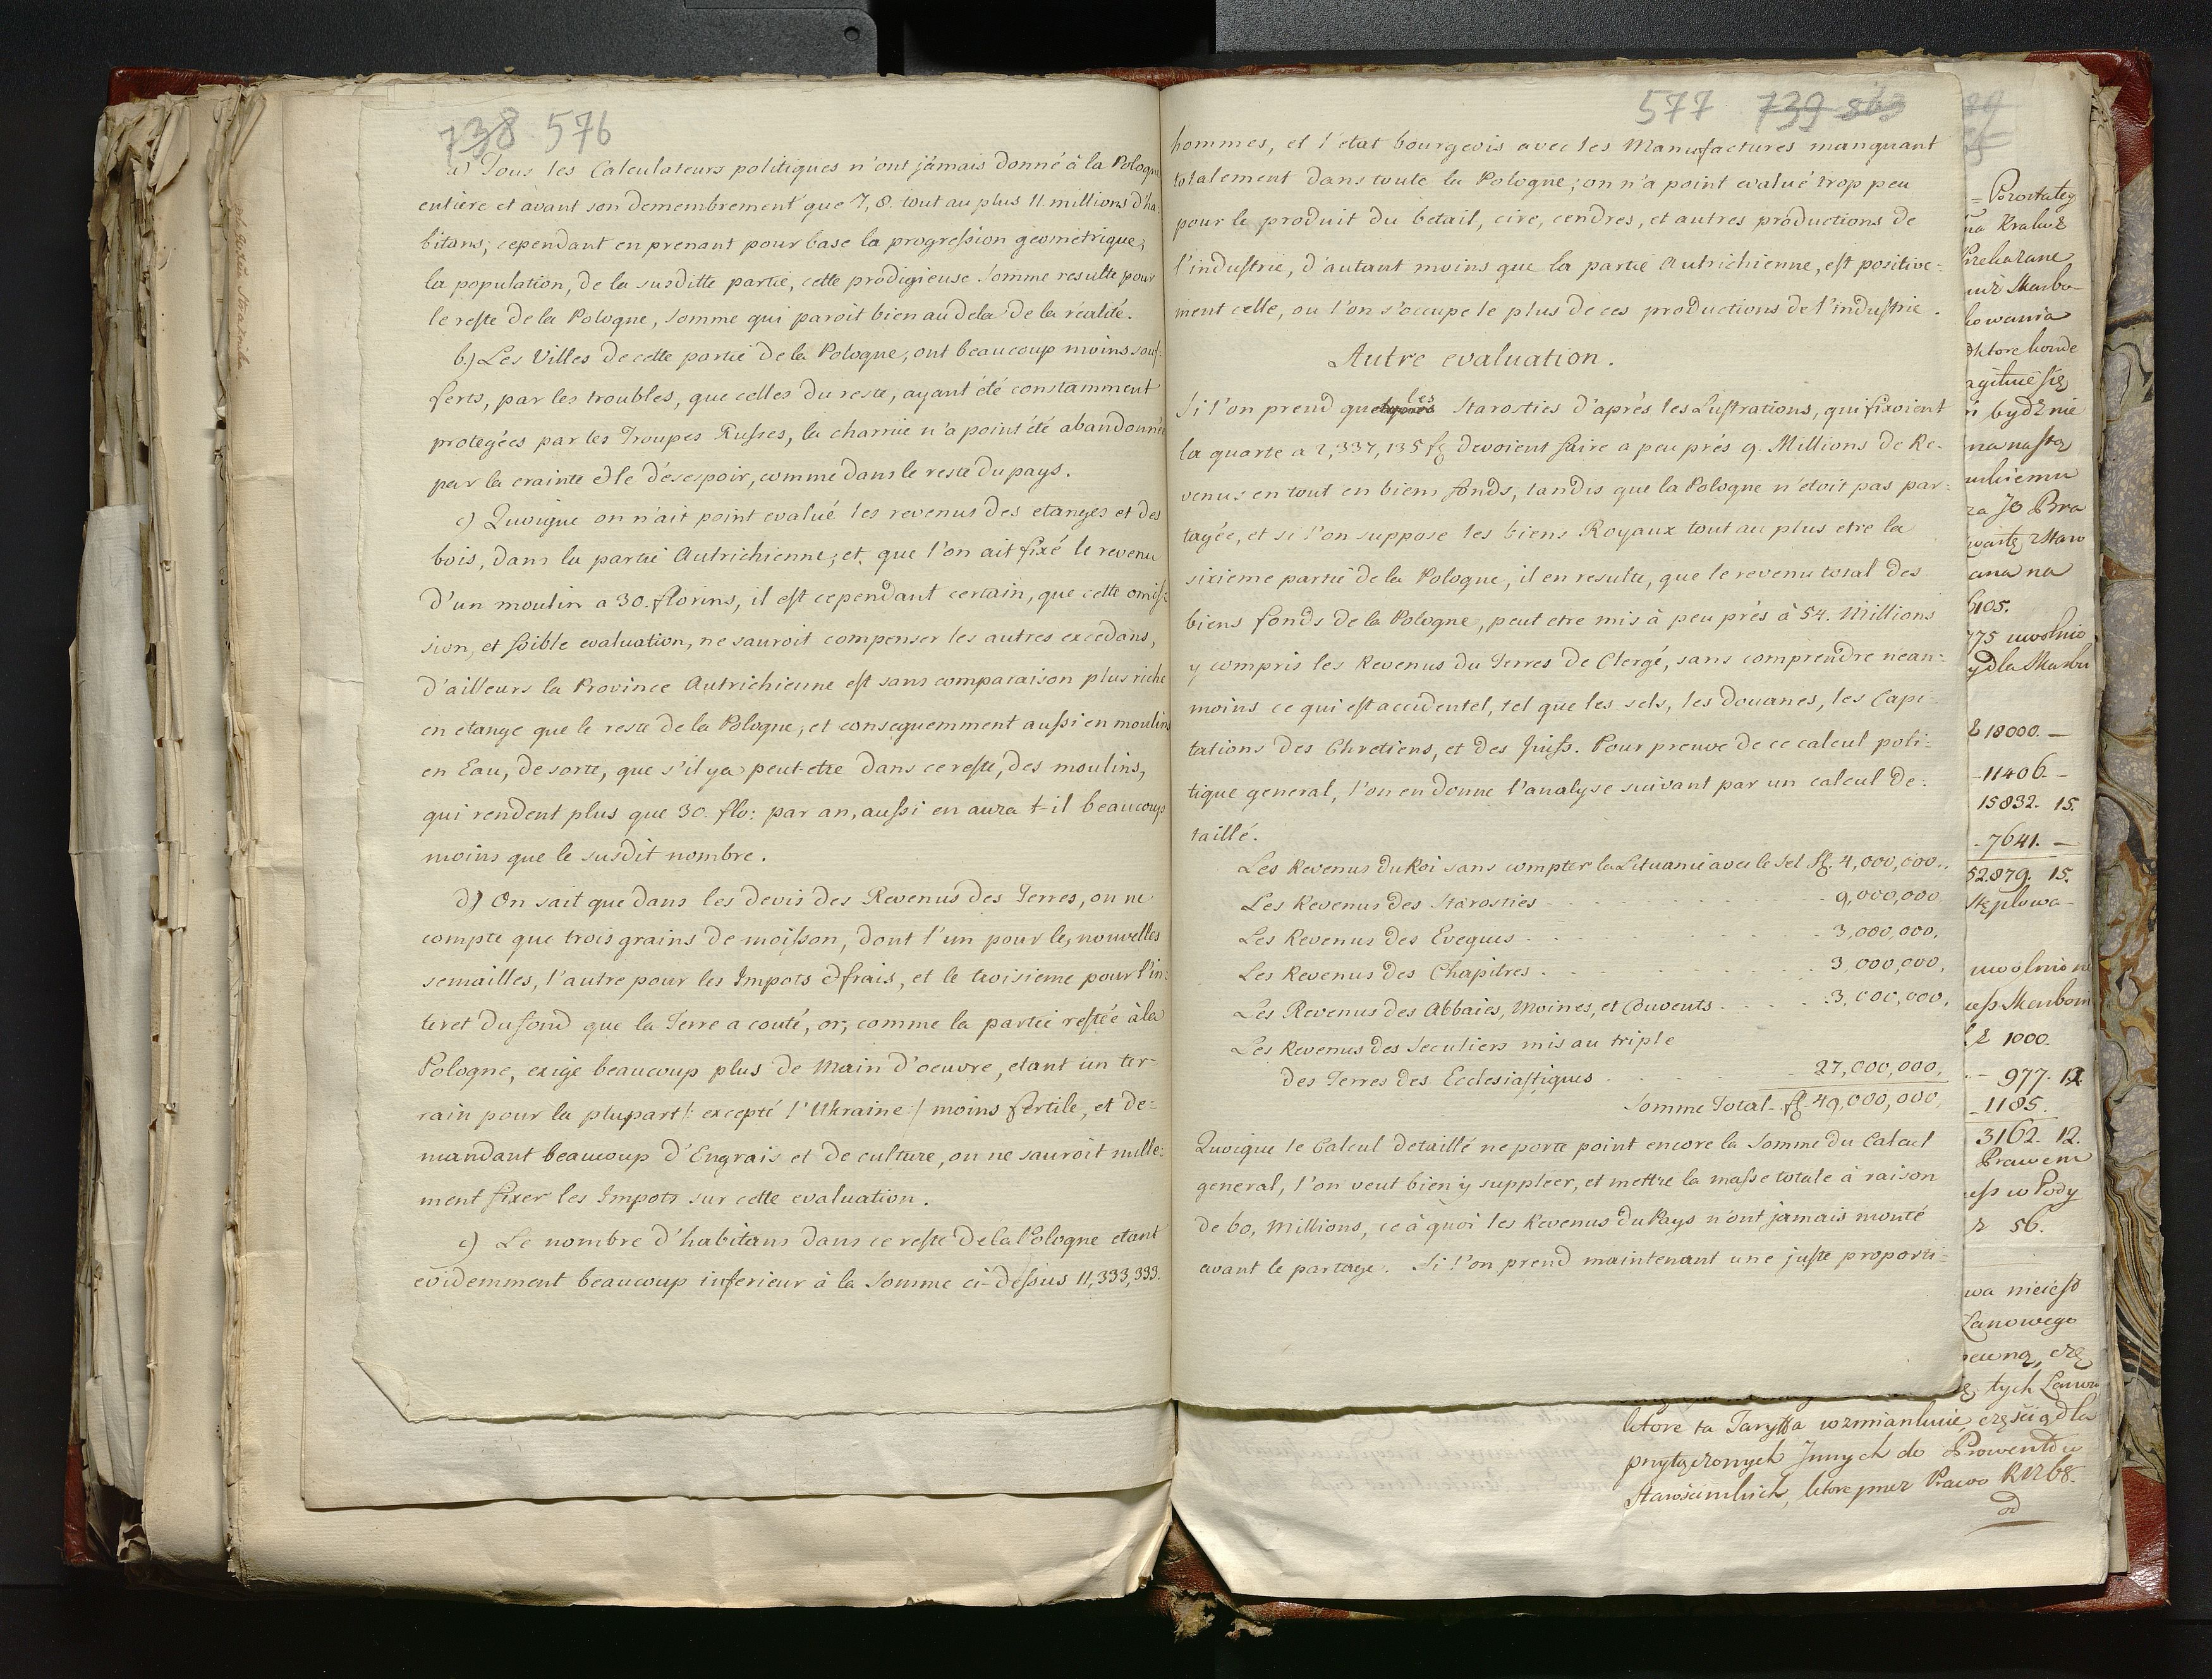 738 576
a) Tous les Calculateurs politiques n'ont jámais donné à la Pologne
entiére et avant son demembrement que 7, 8. tout au plus 11. millions d'ha-
bitans; cependant en prenant pour base la progression geométrique,
la population, de la susditte partie, cette prodigieuse somme resulte pour
le reste de la Pologne, somme qui paroit bien au dela de la réalité.
b.) Les Villes de cette partie de la Pologne, ont beaucoup moins souf-
ferts, par les troubles, que celles du reste, ayant été constamment
protegées par les Troupes Russes, la charrue n'a point été abandonnée
par la crainte et le désespoir, comme dans le reste du pays.
c) Quoique on n'ait point evalué les revenus des etanges et des
bois, dans la partie Autrichienne; et que l'on ait fixé le revenu
d'un moulin a 30. florins, il est cependant certain, que cette omis-
sion, et foible evaluation, ne sauroit compenser les autres excedans,
d'ailleurs la Province Autrichienne est sans comparaison plus riche
en etange que le reste de la Pologne, et consequemment aussi en moulins
en Eau, de sorte, que s'il y a peut-etre dans ce reste, des moulins,
qui rendent plus que 30. flo: par an, aussi en aura t-il beaucoup
moins que le susdit nombre.
d) On sait que dans les devis des Revenus des Terres, on ne
compte que trois grains de moisson, dont l'un pour les nouvelles
semailles, l'autre pour les Impots et frais, et le troisieme pour l'in-
teret du fond que la Terre a couté, or, comme la partie restée à la
Pologne, exige beaucoup plus de Main d'oeuvre, etant un ter-
rain pour la plupart /: excepté l'Ukraine :/ moins fertile, et de-
mandant beaucoup d'Engrais et de culture, on ne sauroit nulle-
ment fixer les Impots sur cette evaluation.
e) Le nombre d'habitans dans ce reste de la Pologne etant
evidemment beaucoup inferieur à la Somme ci-dessus 11,333,333.
577 739 863
hommes, et l'état bourgeois avec les Manufactures manquant
totalement dans toute la Pologne; on n'a point evalué trop peu
pour le produit du betail, cire, cendres, et autres productions de
l'industrie, d'autant moins que la partie Autrichienne, est positive-
ment celle, ou l'on s'occupe le plus de ces productions de l'industrie.
Autre evaluation.
Si l'on prend que les Starosties d'aprés les Lustrations, qui fixoient
la quarte a 2,337,135 fl devoient faire a peu prés 9. Millions de Re-
venus en tout en biens fonds, tandis que la Pologne n'etoit pas par-
tagée, et si l'on suppose les biens Royaux tout au plus etre la
sixieme partie de la Pologne, il en resulte, que le revenu total des
biens fonds de la Pologne, peut etre mis à peu prés à 54. Millions
y compris les Revenus du Terres de Clergé, sans comprendre nean-
moins ce qui est accidentel, tel que les sels, les douanes, les Capi-
tations des Chretiens, et des Juifs. Pour preuve de ce calcul poli-
tique general, l'on en donne l'analyse suivant par un calcul de-
taillé.
Les Revenus du Roi sans compter la Lituanie avec le Sel fl. 4,000,000.
Les Revenus des Starosties 9,000,000
Les Revenus des Eveques 3,000,000.
Les Revenus des Chapitres 3,000,000.
Les Revenus des Abbaies, Moines, et Couvents 3,000,000.
Les Revenus des Seculiers mis au triple
des Terres des Ecclesiastiques 27,000,000.
Somme Total - fl 49,000,000.
Quoique le Calcul detaillé ne porte point encore la Somme du Calcul
general, l'on veut bien y suppleer, et mettre la masse totale à raison
de 60, Millions, ce à quoi les Revenus du Pays n'ont jamais monté
avant le partage. Si l'on prend maintenant une juste proporti-
na Kraluz
na na
6105.
18000. —
11406. —
15832. 15.
7641. —
52.879. 15.
1000.
977. 12
1185.
3162. 12.
Prawem
56.
Lanowego
tych Lanow
ktore ta Taryffa wzmiankuie, częścią dla
przyłączonych Innych do Prowentow
Starościnskich, ktore przez Prawo R 1768.
od